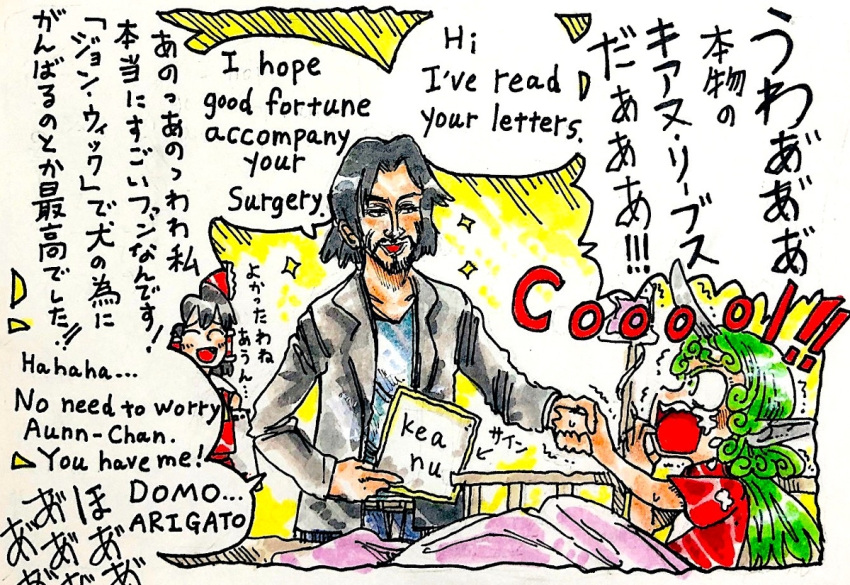 うわあ゛あ゛あ゛
本物の
キアヌ・リーブス
だぁぁあ!!!
Hi
I've read
your letters.
I hope
good fortune
accompany
your
Surgery.
Cooool!!
あのっあのっわわ私
本当にすごいファンなんです!
「ジョン・ウィック」で犬の為に
がんばるのとか最高でした!!
よかったわね
あうん…
kea
nu
サイン
Hahaha...
No need to worry
Aunn-Chan.
You have me!
DOMO...
ARIGATO
ほあ゛